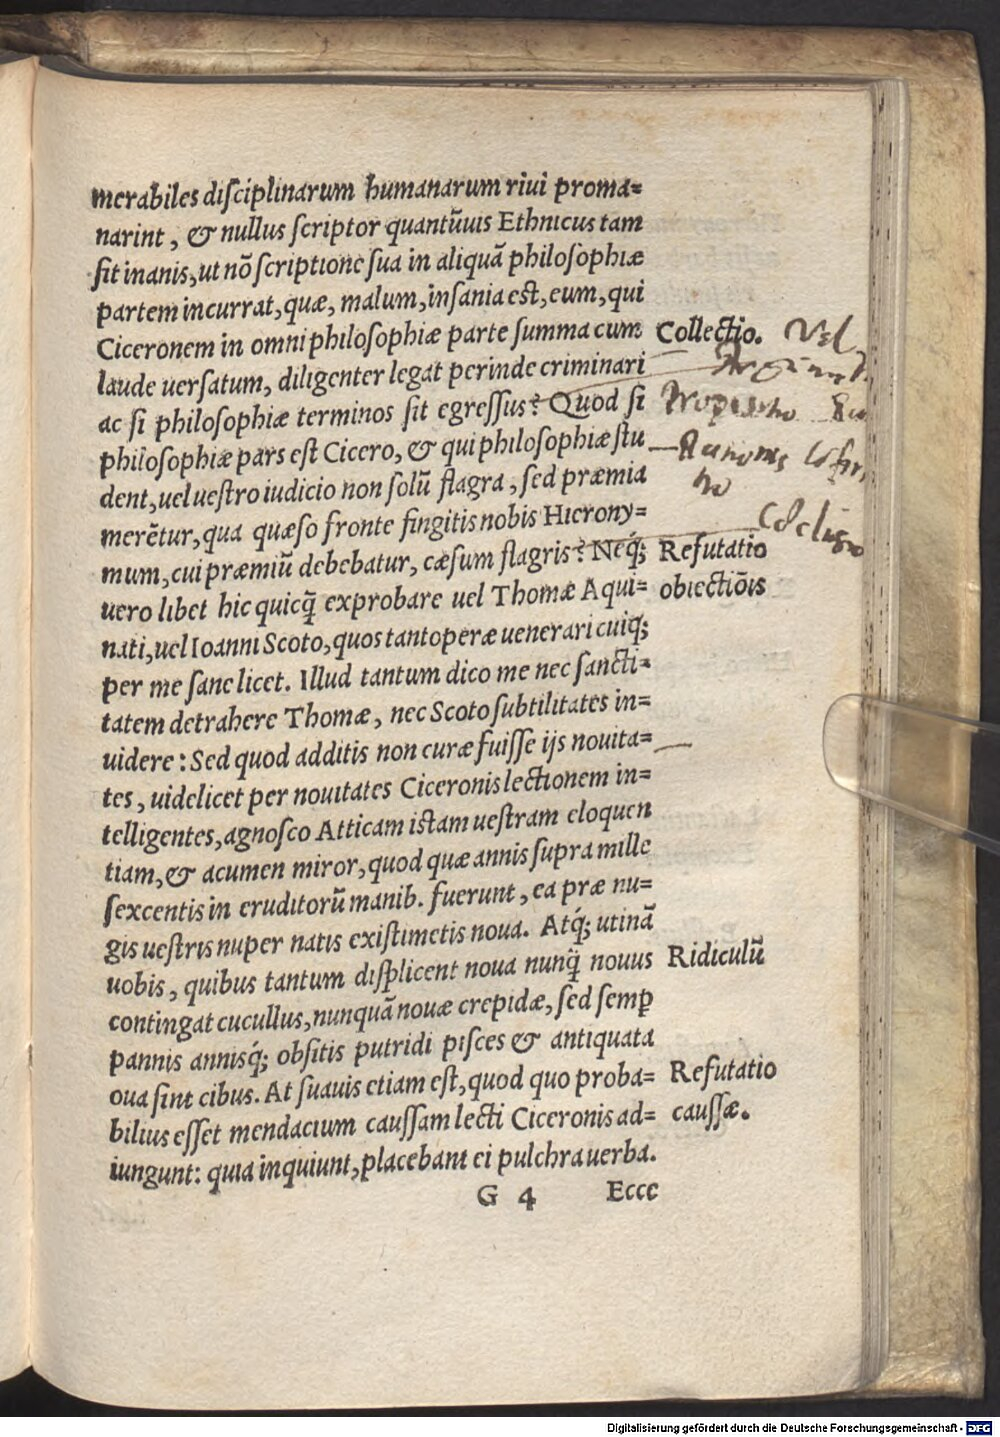 merabiles diſciplinarum humanarum riui proma=
narint, & nullus ſcriptor quantũuis Ethnicus tam
ſit inanis, ut nõ ſcriptione ſua in aliquã philoſophiæ
partem incurrat, quæ, malum, inſania eſt, eum, qui
Ciceronem in omni philoſophiæ parte ſumma cum
laude uerſatum, diligenter legat perinde criminari
ac ſi philoſophiæ terminos ſit egreſſus? Quod ſi
philoſophiæ pars eſt Cicero, & qui philoſophiæ ſtu
dent, uel ueſtro iudicio non ſolũ flagra, ſed præmia
merẽtur, qua quæſo fronte fingitis nobis Hierony=
mum, cui præmiũ debebatur, cæſum flagris? Neq́;
uero libet hic quicq̃ exprobare uel Thomæ Aqui=
nati, uel Ioanni Scoto, quos tantoperæ uenerari cuiq;
per me ſane licet. Illud tantum dico me nec ſancti=
tatem detrahere Thomæ, nec Scoto ſubtilitates in=
uidere: Sed quod additis non curæ fuiſſe ijs nouita=
tes, uidelicet per nouitates Ciceronis lectionem in=
telligentes, agnoſco Atticam iſtam ueſtram eloquen
tiam, & acumen miror, quod quæ annis ſupra mille
ſexcentis in eruditorũ manib. fuerunt, ea præ nu=
gis ueſtris nuper natis exiſtimetis noua. Atq́; utinã
uobis, quibus tantum diſplicent noua nunq̃ nouus
contingat cucullus, nunquã nouæ crepidæ, ſed ſemꝑ
pannis annisq́; obſitis putridi piſces & antiquata
oua ſint cibus. At ſuauis etiam eſt, quod quo proba=
bilius eſſet mendacium cauſſam lecti Ciceronis ad=
iungunt: quia inquiunt, placebant ei pulchra uerba.
G 4 Ecce
Collectio.
Vel
Refutatio
obiectiõis
Ridiculũ
Refutatio
cauſſæ.
Digitalisierung gefördert durch die Deutsche Forschungsgemeinschaft - DFG